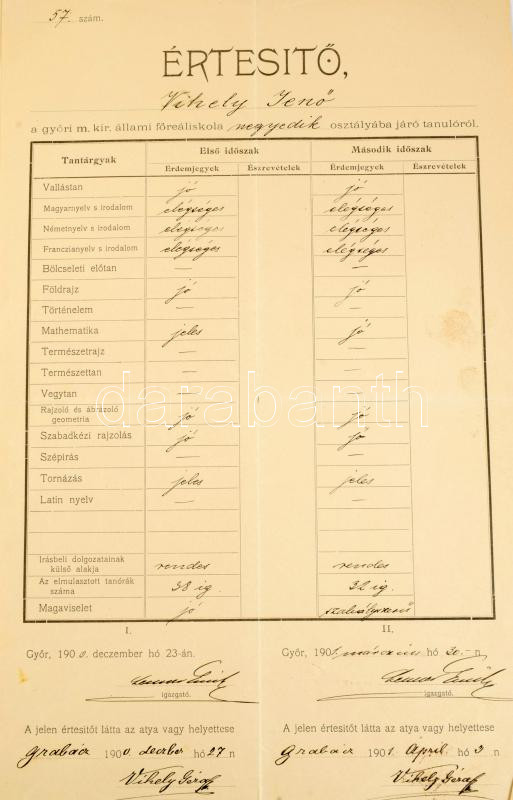 57. szám.
ÉRTESITŐ,
Vihely Jenő
a győri m. kir. állami főreáliskola negyedik osztályába járó tanulóról.
Tantárgyak Első időszak Második időszak
Érdemjegyek Észrevételek Érdemjegyek Észrevételek
Vallástan jó jó
Magyarnyelv s irodalom elégséges elégséges
Németnyelv s irodalom elégséges elégséges
Franczianyelv s irodalom elégséges elégséges
Bölcseleti előtan — —
Földrajz jó jó
Történelem — —
Mathematika jeles jó
Természetrajz — —
Természettan — —
Vegytan — —
darabanth
Rajzoló és ábrázoló
geometria jó jó
Szabadkézi rajzolás jó jó
Szépírás — —
Tornázás jeles jeles
Latin nyelv — —
Irásbeli dolgozatainak
külső alakja rendes rendes
Az elmulasztott tanórák
száma 38 ig. 32 ig.
Magaviselet jó szabályszerű
I. II.
Győr, 1900. deczember hó 23-án. 1901. márczius hó 30.-n
igazgató. igazgató.
A jelen értesitőt látta az atya vagy helyettese A jelen értesitőt látta az atya vagy helyettese
Grabácz 1900 hó 27 n Grabácz 1901. April hó 3 n
Vihely Vihely